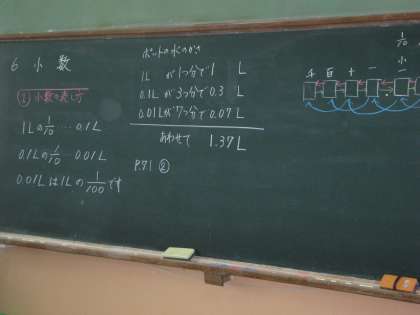 6 小数
① 小数の表し方
1Lの1/10 … 0.1L
0.1Lの1/10 … 0.01L
0.01Lは1Lの1/100です
ポットの水のかさ
1L が 1つ分で 1 L
0.1L が 3つ分で 0.3 L
0.01L が 7つ分で 0.07 L
あわせて 1.37L
P.71 ②
1/10
小
千 百 十 一